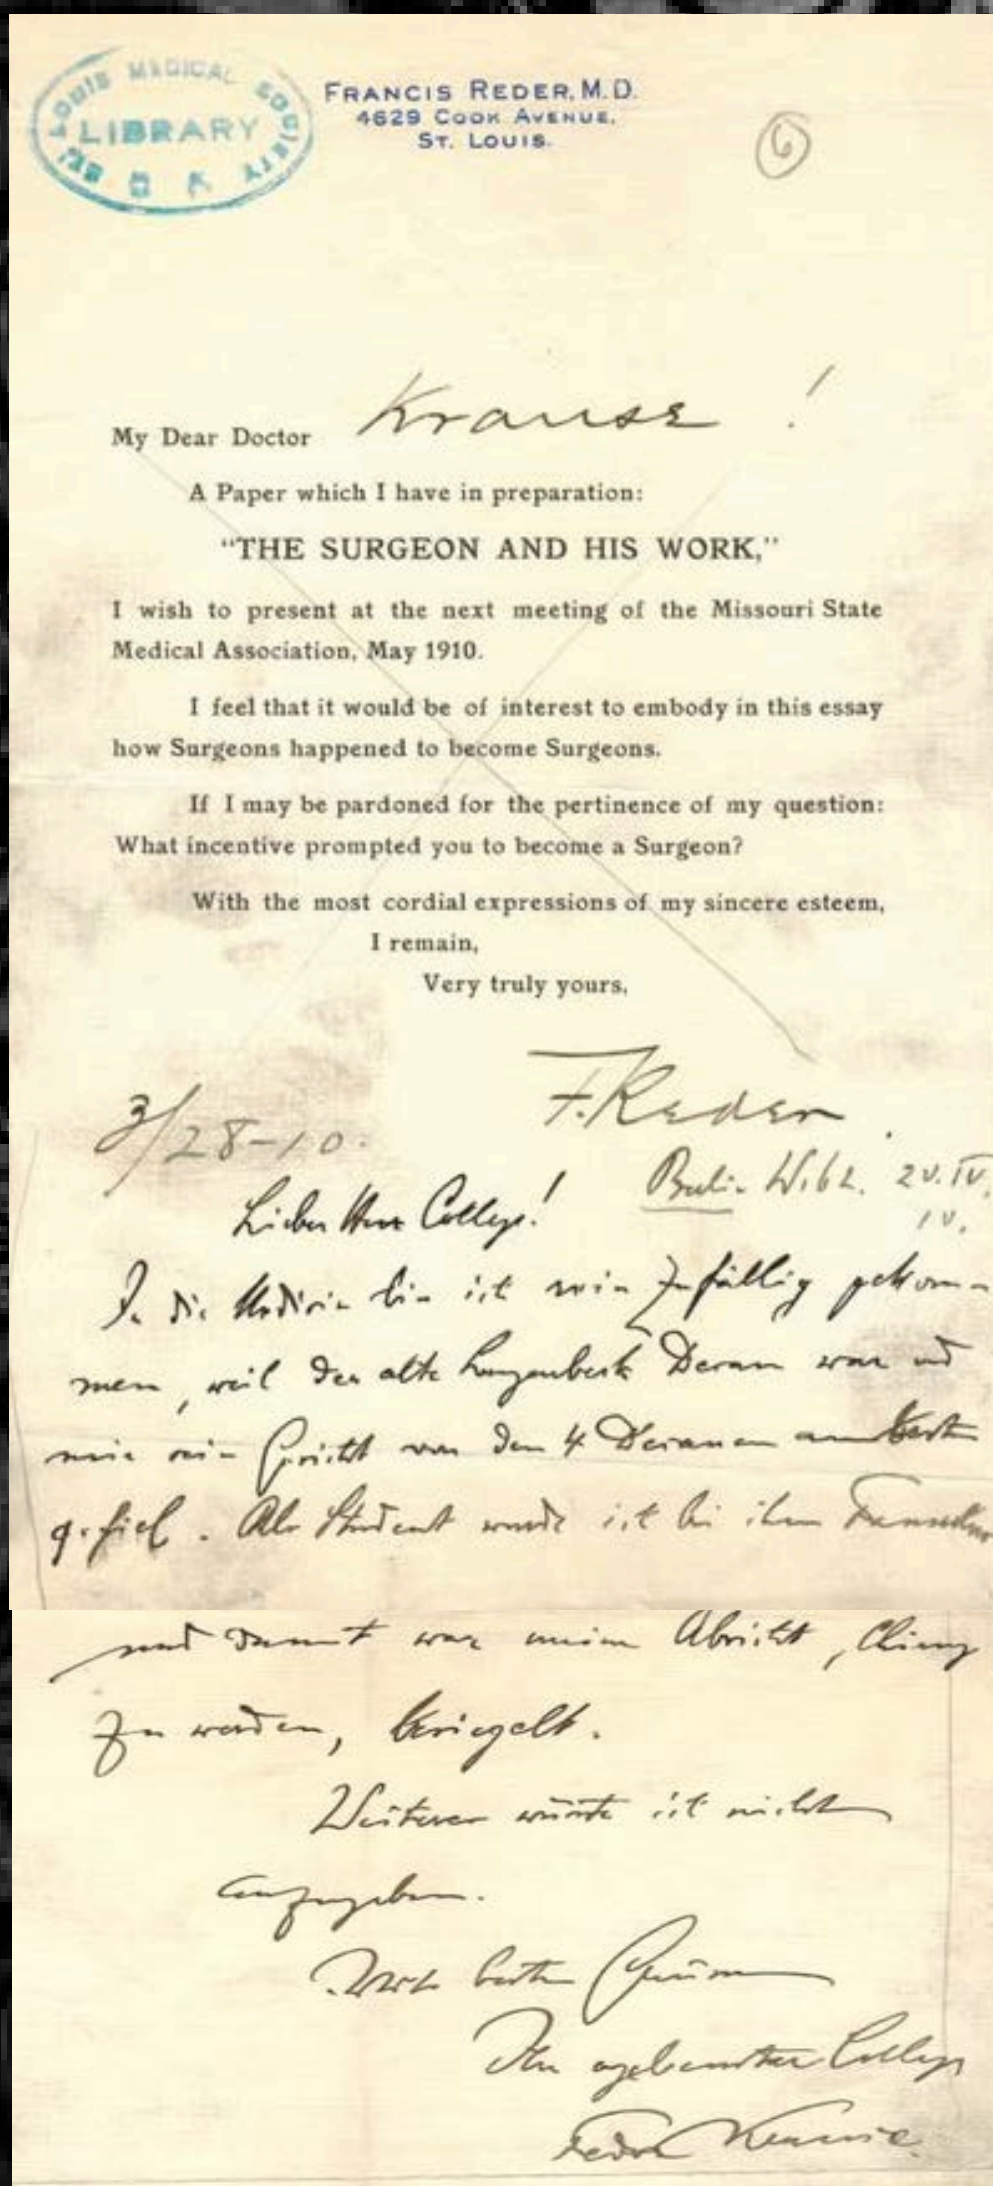 ST. LOUIS MEDICAL SOCIETY
LIBRARY
FRANCIS REDER, M.D.
4629 COOK AVENUE,
ST. LOUIS.
6
My Dear Doctor Krause !
A Paper which I have in preparation:
"THE SURGEON AND HIS WORK,"
I wish to present at the next meeting of the Missouri State
Medical Association, May 1910.
I feel that it would be of interest to embody in this essay
how Surgeons happened to become Surgeons.
If I may be pardoned for the pertinence of my question:
What incentive prompted you to become a Surgeon?
With the most cordial expressions of my sincere esteem,
I remain,
Very truly yours,
F. Reder
3/28-10.
Berlin W. 62. 20. IV.
10.
Lieber Herr College!
In die Medicin bin ich rein zufällig gekom-
men, weil der alte Langenbeck Decan war und
mir sein Gesicht von den 4 Decanen am besten
gefiel. Als Student wurde ich bei ihm Famulus
und damit war meine Absicht, Chirurg
zu werden, besiegelt.
Weiteres wüsste ich nicht
anzugeben.
Mit besten Grüssen
Ihr ergebenster College
Fedor Krause.